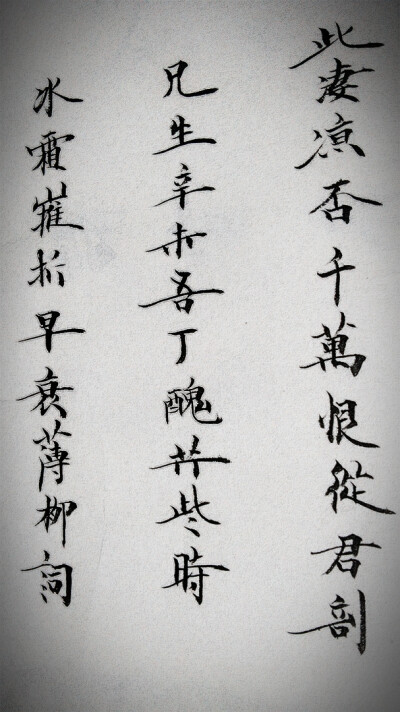 此淒凉否千萬恨從君剖
凡生辛未吾丁醜共些時
冰霜摧折早衰薄柳詞